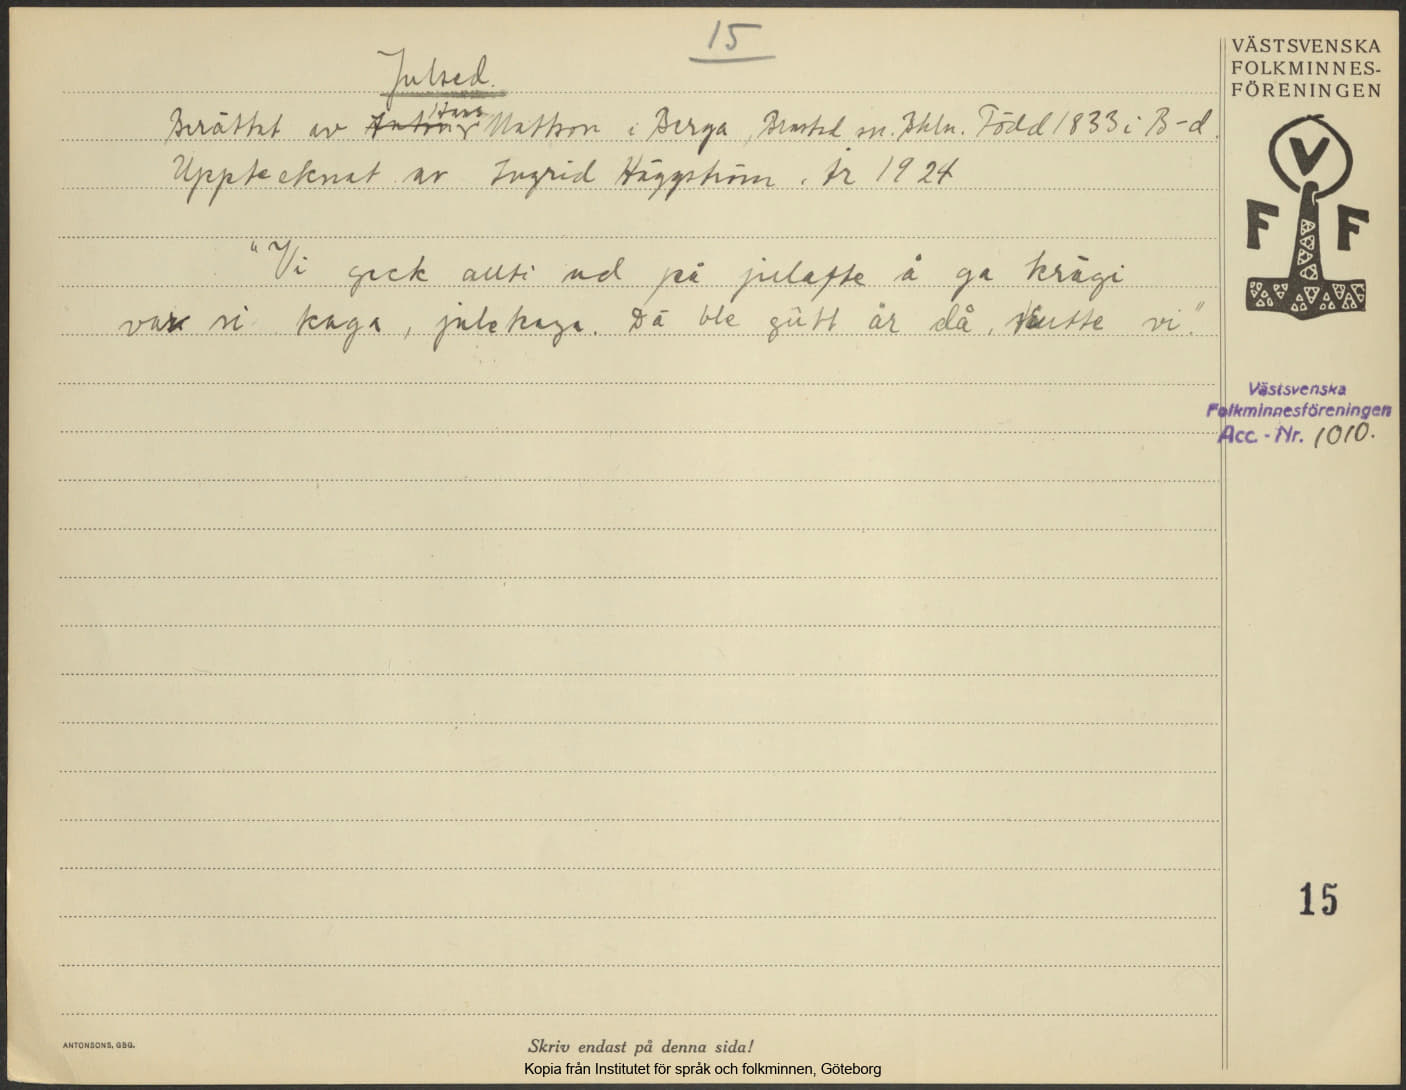 15
Julsed.
Berättat av Hans Mattson i Berga, Brastad sn. Bhln. Född 1833 i B-d.
Upptecknat av Ingrid Häggström. År 1924
"Vi geck allti ud på julafte å ga krägi
var si kaga, julekaga. Dä ble gûtt år då, trutte vi."
VÄSTSVENSKA
FOLKMINNES-
FÖRENINGEN
V
F F
Västsvenska
Folkminnesföreningen
Acc.-Nr. 1010.
15
ANTONSONS, GBG.
Skriv endast på denna sida!
Kopia från Institutet för språk och folkminnen, Göteborg